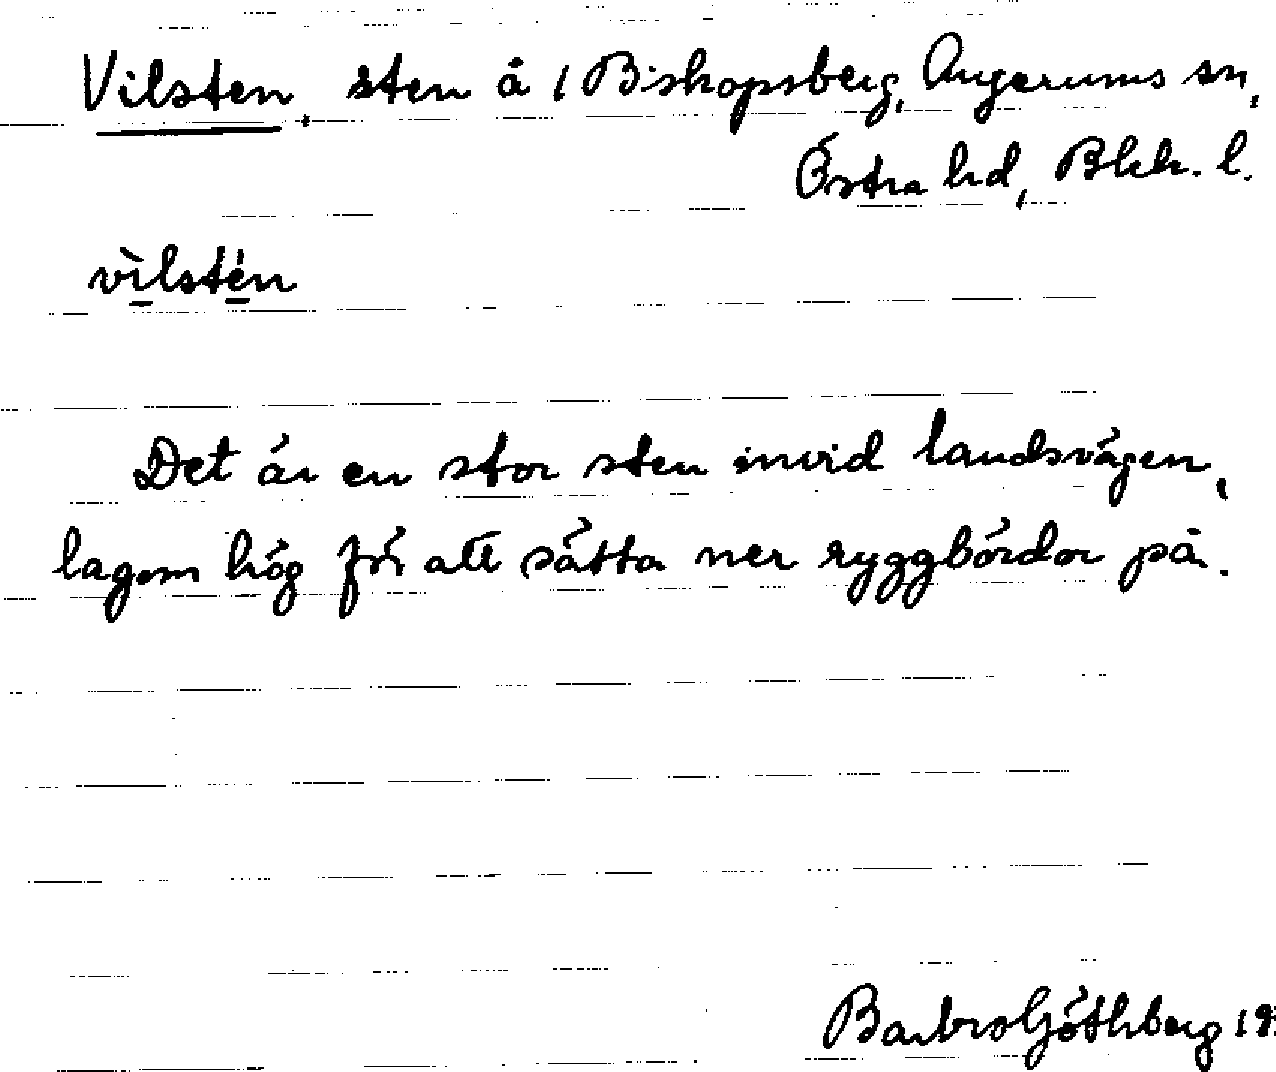 Vilsten, sten å 1 Biskopsberg, Augerums sn,
Östra hd, Blek. l.
vìlstén
Det är en stor sten invid landsvägen,
lagom hög för att sätta ner ryggbördor på.
Barbro Göthberg